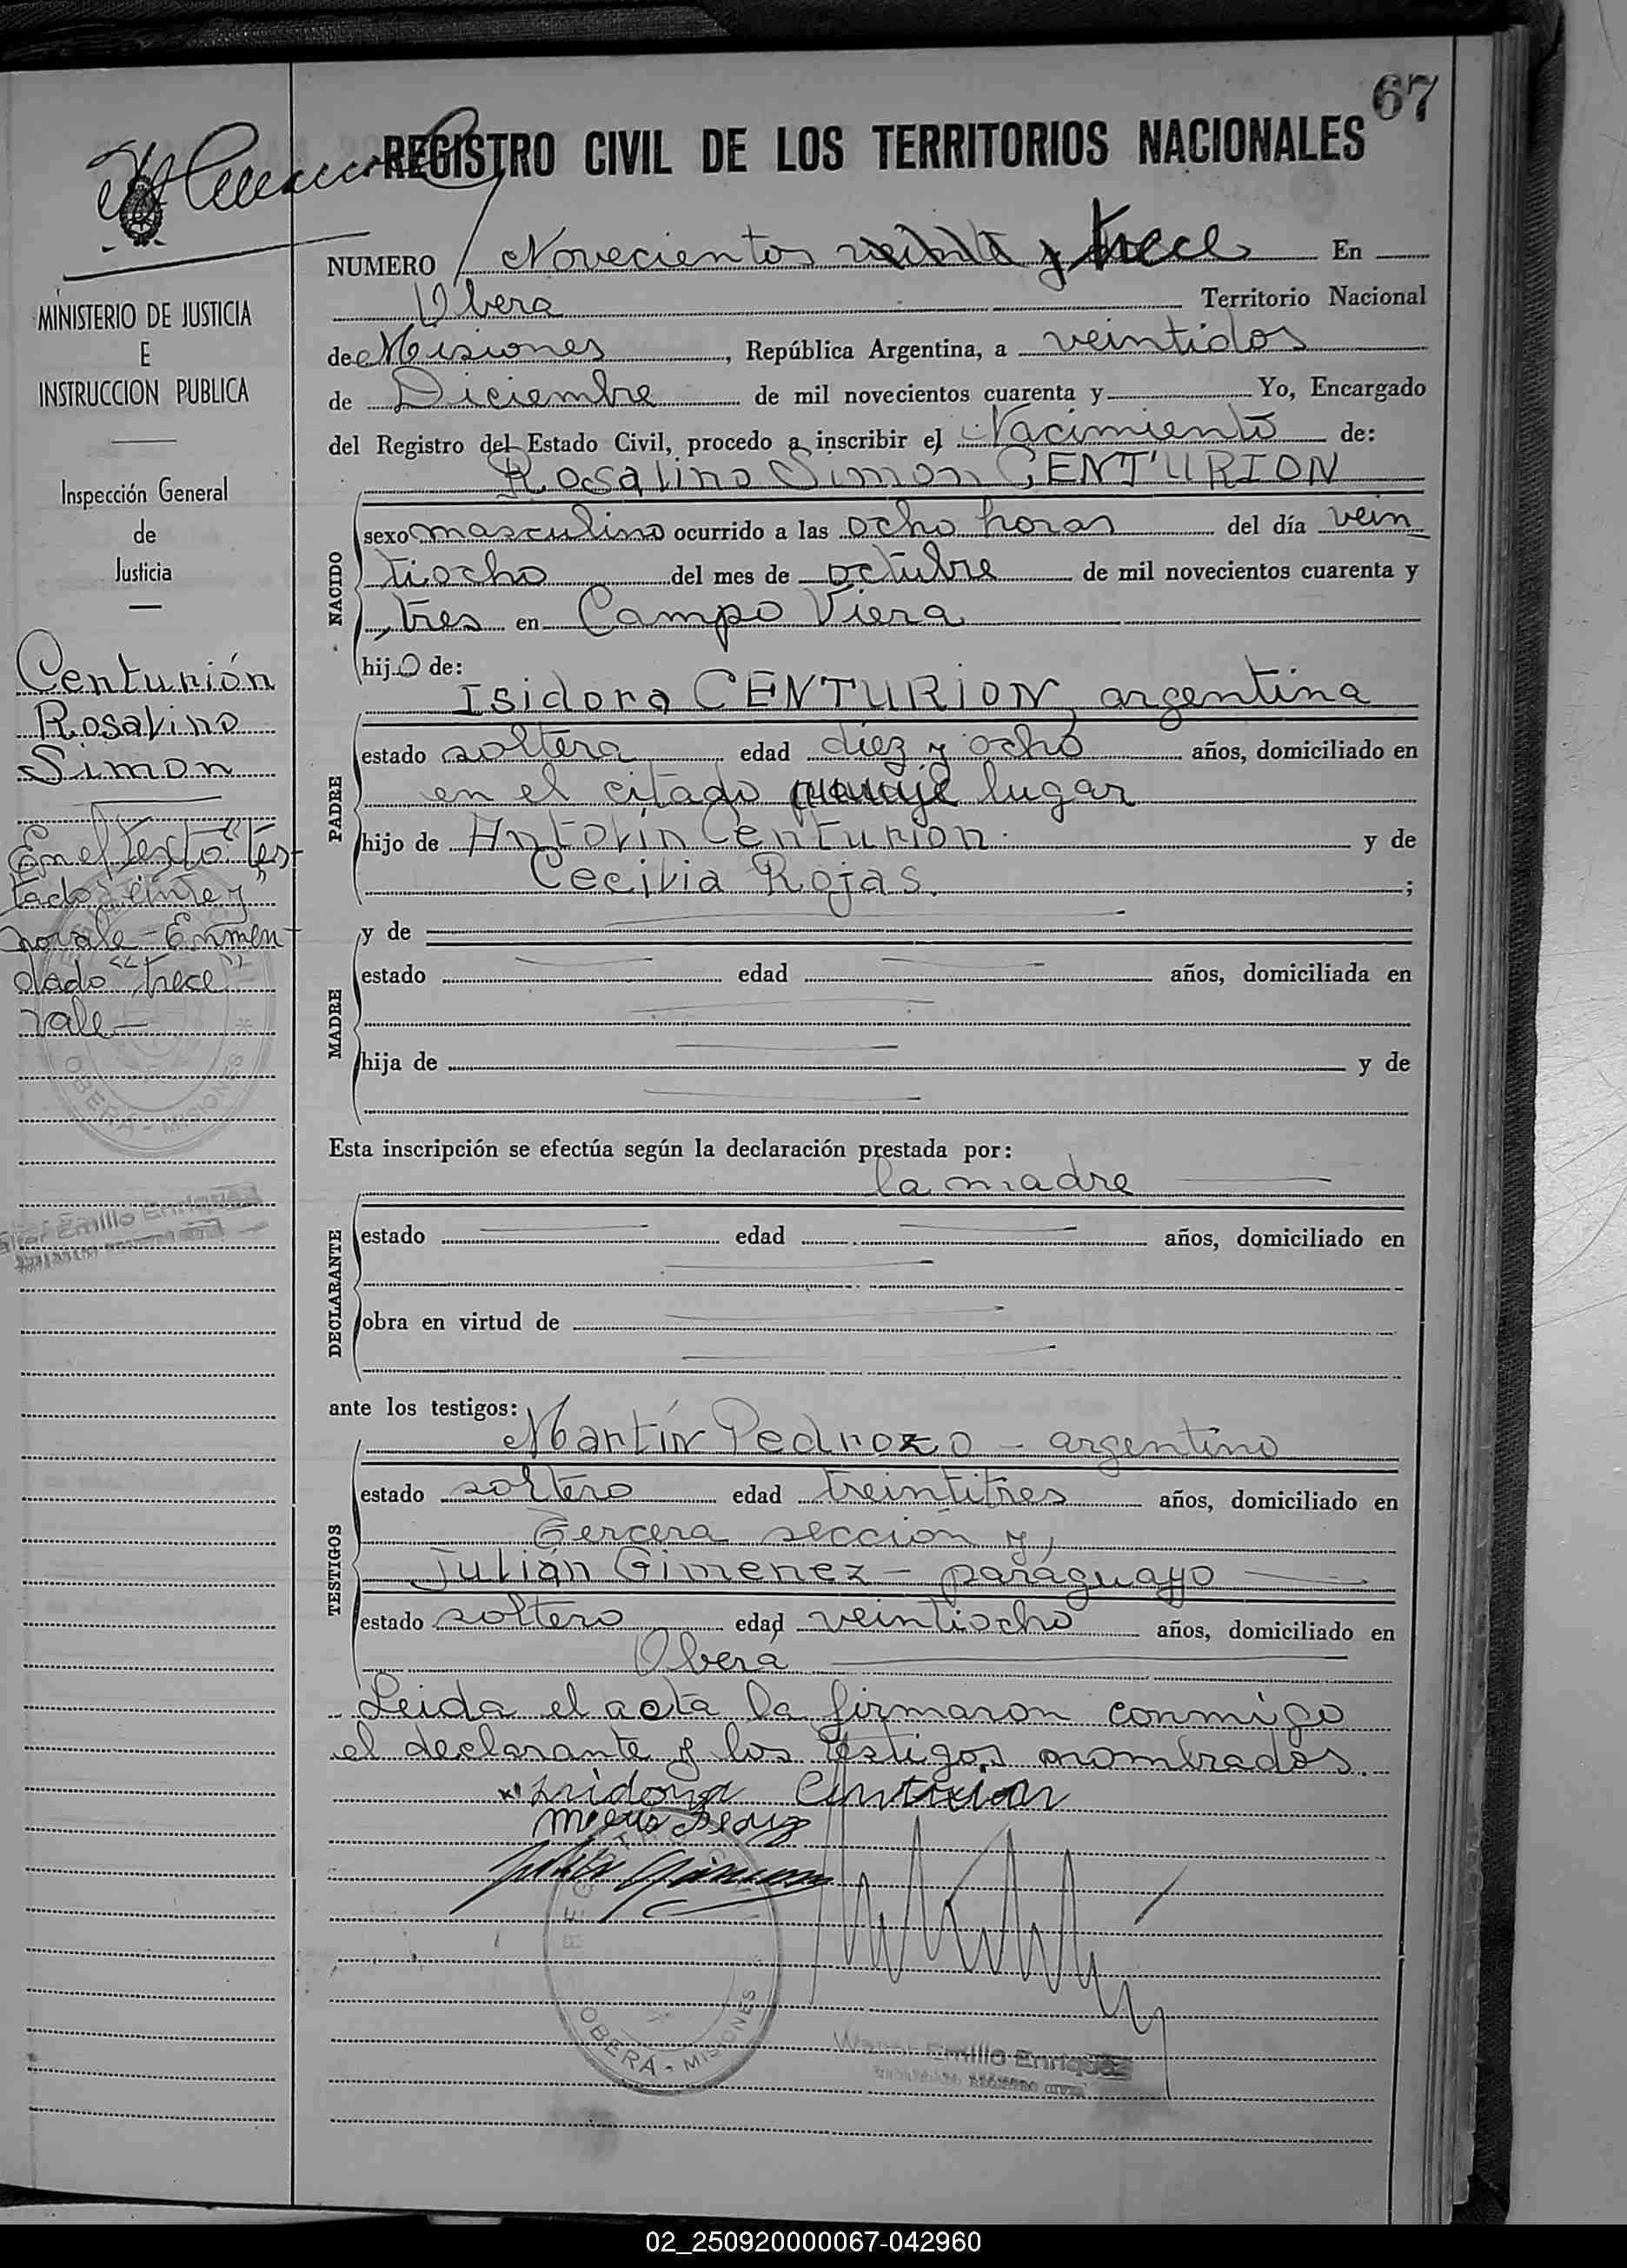 67
REGISTRO CIVIL DE LOS TERRITORIOS NACIONALES
NUMERO Novecientos veinte y trece En
Obera Territorio Nacional
de Misiones, República Argentina, a veintidos
de Diciembre de mil novecientos cuarenta y Yo, Encargado
del Registro del Estado Civil, procedo a inscribir el Nacimiento de:
Rosalino Simon CENTURION
NACIDO
sexo masculino ocurrido a las ocho horas del día vein
tiocho del mes de octubre de mil novecientos cuarenta y
tres en Campo Viera
hijo de:
Isidora CENTURION, argentina
PADRE
estado soltera edad diez y ocho años, domiciliado en
en el citado lugar
hijo de Antolin Centurion y de
Cecilia Rojas. ;
MADRE
y de
estado edad años, domiciliada en
hija de y de
Esta inscripción se efectúa según la declaración prestada por:
la madre
DECLARANTE
estado edad años, domiciliado en
obra en virtud de
ante los testigos:
Martín Pedrozo - argentino
TESTIGOS
estado soltero edad treintitres años, domiciliado en
Tercera sección y,
Julián Gimenez - paraguayo
estado soltero edad veintiocho años, domiciliado en
Oberá
Leida el acta la firmaron conmigo
el declarante y los testigos nombrados.
Isidora Centurion
OBERA - MISIONES
Walter Emilio Enriquez
MINISTERIO DE JUSTICIA
E
INSTRUCCION PUBLICA
Inspección General
de
Justicia
Centurión
Rosalino
Simon
En el texto "tes-
tado: veinte y"
no vale - Enmen-
dado "trece"
vale -
OBERA - MISIONES
Walter Emilio Enriquez
02_250920000067-042960